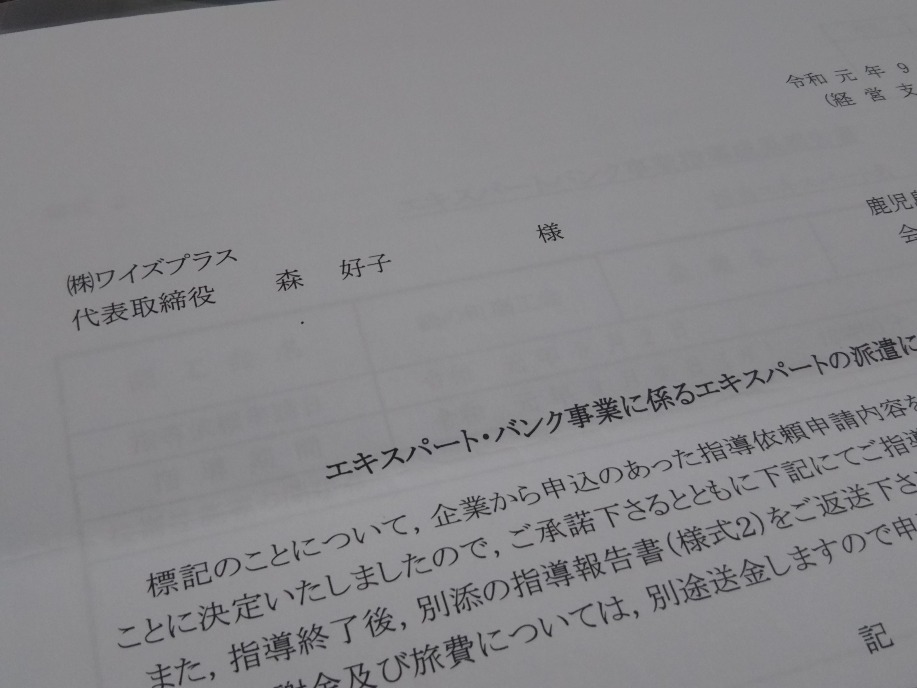 令和 元 年 9
(経 営 支
鹿児島
会
㈱ワイズプラス
代表取締役 森 好子 様
エキスパート・バンク事業に係るエキスパートの派遣に
標記のことについて, 企業から申込のあった指導依頼申請内容を
ことに決定いたしましたので, ご承諾下さるとともに下記にてご指導
また, 指導終了後, 別添の指導報告書(様式2)をご返送下さ
謝金及び旅費については, 別途送金しますので申
記